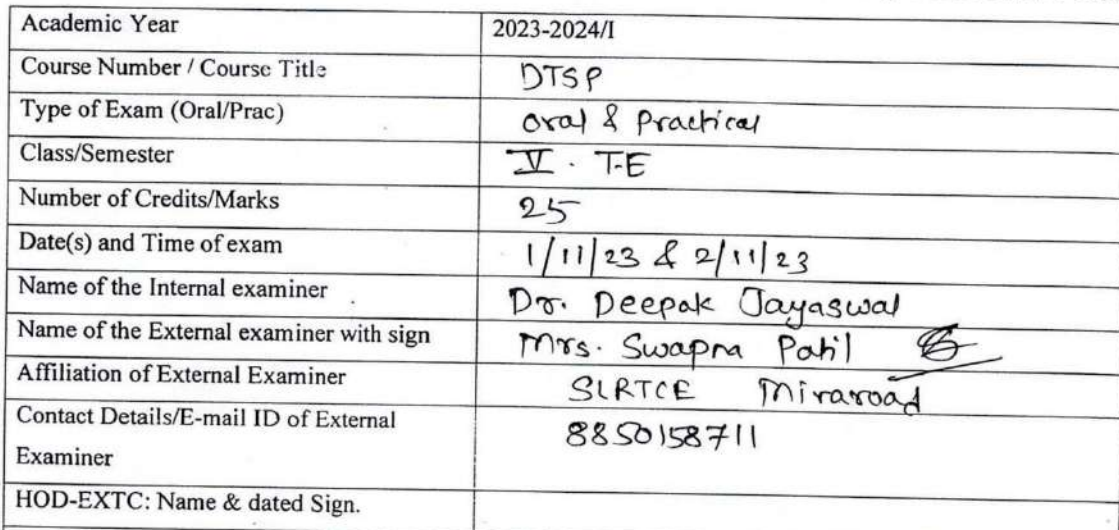 Academic Year 2023-2024/I
Course Number / Course Title DTSP
Type of Exam (Oral/Prac) Oral & Practical
Class/Semester V. T.E
Number of Credits/Marks 25
Date(s) and Time of exam 1/11/23 & 2/11/23
Name of the Internal examiner Dr. Deepak Jayaswal
Name of the External examiner with sign Mrs. Swapna Patil
Affiliation of External Examiner SLRTCE Miraroad
Contact Details/E-mail ID of External 8850158711
Examiner
HOD-EXTC: Name & dated Sign.